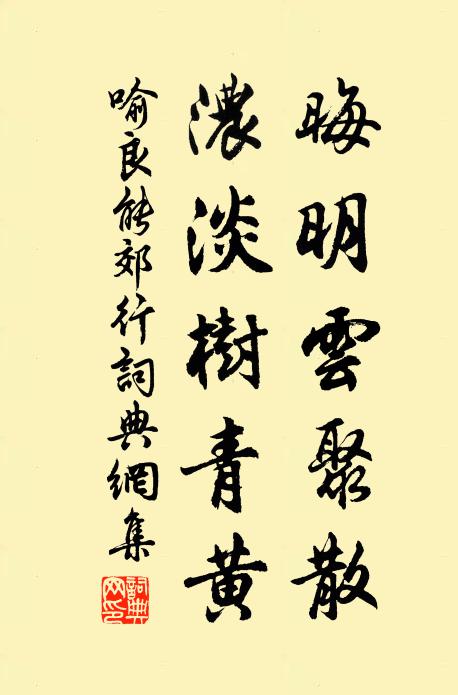 晦明雲聚散
濃淡樹青黃
喻良能郊行詞典網集
詞典網印